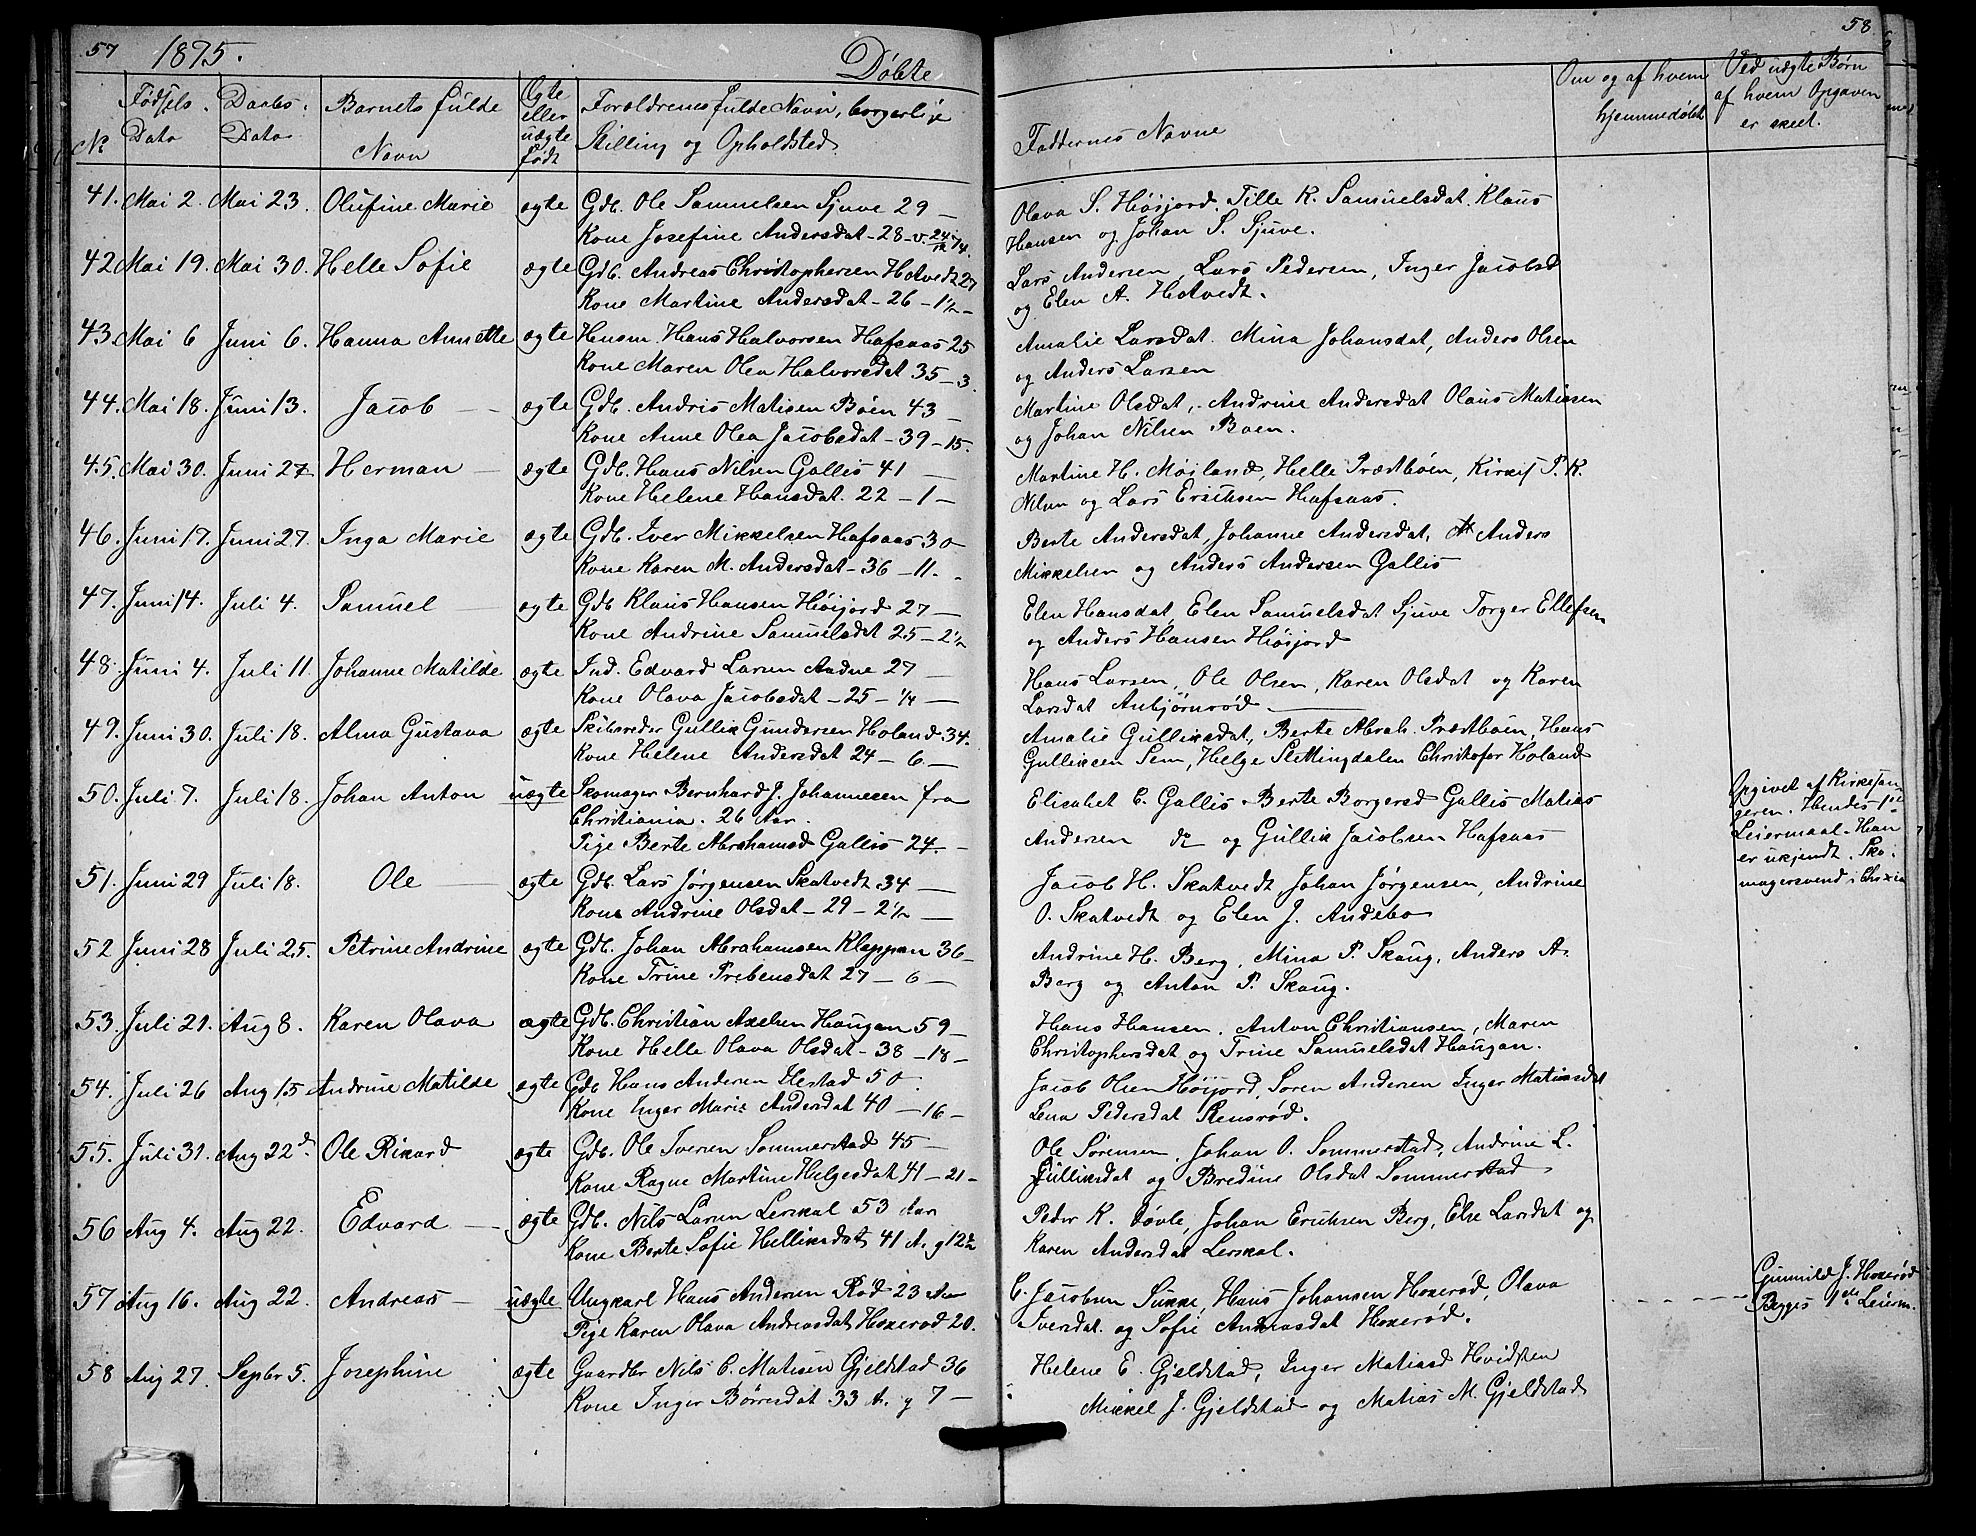 57 1875. Døbte 58
No Fødsels Dato Daabs Dato Barnets fulde Navn Ægte eller uægte født Forældrenes fulde Navn, borgerlige Stilling og Opholdsted Faddernes Navne Om og af hvem hjemmedøbt Ved uægte Børn af hvem Opgaven er skeet.
41. Mai 2. Mai 23. Olufine Marie ægte Gdb. Ole Samuelsen Sjuve 29 — Olava S. Høijord. Tille K. Samuelsdat. Klaus
Kone Josefine Andersdat - 28 - v. 24/12 74. Hansen og Johan S. Sjuve.
42 Mai 19. Mai 30. Helle Sofie ægte Gdb. Andreas Christophersen Hotvedt 27 Lars Andersen, Lars Pedersen, Inger Jacobsd
Kone Martine Andersdat - 26 - 1½ - og Elen A. Hotvedt.
43 Mai 6 Juni 6. Hanna Annette ægte Husm. Hans Halvorsen Hafsaas 25 Amalie Larsdat. Mina Johansdat, Anders Olsen
Kone Maren Olea Halvorsdat 35 - 3. og Anders Larsen
44. Mai 18. Juni 13. Jacob — ægte Gdb. Andris Matisen Bøen 43 — Martine Olsdat, Andrine Andersdat Olaus Matissen
Kone Anne Olea Jacobsdat - 39 - 15. og Johan Nilsen Boen.
45. Mai 30. Juni 27 Herman — ægte Gdb. Hans Nilsen Gallis 41 — Martine H. Møiland, Helle Præstbøen, Kirkes. P. K.
Kone Helene Hansdat. 22 - 1 - Nilsen og Lars Ericksen Hafsaas.
46. Juni 17. Juni 27. Inga Marie ægte Gdb. Iver Mikkelsen Hafsaas 30 Berte Andersdat, Johanne Andersdat, Anders
Kone Karen M. Andersdat - 36 - 11. - Mikkelsen og Anders Andersen Gallis
47. Juni 14. Juli 4. Samuel — ægte Gdb Klaus Hansen Høijord 27 — Elen Hansdat, Elen Samuelsdat Sjuve Torger Ellefsen
Kone Andrine Samuelsdat 25 - 2½ og Anders Hansen Høijord
48. Juni 4. Juli 11. Johanne Matilde ægte Ind. Edvard Larsen Aadne 27 — Hans Larsen, Ole Olsen, Karen Olsdat og Karen
Kone Olava Jacobsdat - 25 - ¼ — Larsdat Anbjørnrød.
49. Juni 30. Juli 18. Alma Gustava ægte Skibsreder Gullik Gundersen Holand 34. Amalie Gulliksdat, Berte Abrah. Præstbøen, Hans
Kone Helene Andersdat 24 - 6 — Gulliksen Sem, Helge Slettingdalen Christofer Holand
50. Juli 7. Juli 18. Johan Anton uægte Skomager Bernhard J. Johannesen fra Elisabet C. Gallis Berte Borgersd Gallis Matias Opgivet af Kirkesan
Christiania. 26 Aar. Andersen do og Gullik Jacobsen Hafsaas geren. Hendes 1ste
Pige Berte Abrahamsd Gallis 24. - Leiermaal - Han
er ukjendt. Sko-
magersvend i Chrxia
51. Juni 29 Juli 18. Ole — ægte Gdb. Lars Jørgensen Skatvedt 34 — Jacob H. Skatvedt, Johan Jørgensen, Andrine
Kone Andrine Olsdat - 29 - 2½ — O. Skatvedt og Elen J. Andebo
52 Juni 28 Juli 25. Petrine Andrine ægte Gdb. Johan Abrahamsen Kleppan 36 - Andrine H. Berg, Mina P. Skaug, Anders A.
Kone Trine Prebensdat 27 - 6 — Berg og Anton P. Skaug.
53. Juli 21. Aug 8. Karen Olava ægte Gdb. Christian Axelsen Haugan 59 - Hans Hansen. Anton Christiansen, Maren
Kone Helle Olava Olsdat - 38 - 18 - Christophersdat og Trine Samuelsdat Haugan.
54. Juli 26 Aug 15 Andrine Matilde ægte Gdb Hans Andersen Ilestad 50. Jacob Olsen Høijord, Søren Andersen Inger Matiasdat
Kone Inger Marie Andersdat 40 - 16 - Lena Pedersdat Stensrød.
55. Juli 31. Aug 22d Ole Rikard ægte Gdb. Ole Iversen Sommerstad 45 — Ole Sørensen, Johan O. Sommerstad, Andrine L.
Kone Ragne Martine Helgesdat 41 - 21 - Gulliksdat og Bredine Olsdat Sommerstad
56 Aug 4. Aug 22. Edvard — ægte Gdb. Nils Larsen Lerskal 53 Aar Peder K. Døvle, Johan Ericksen Berg, Else Larsdat og
Kone Berte Sofie Helliksdat 41 A. g 12½ Karen Andersdat Lerskal.
57 Aug 16. Aug 22. Andreas — uægte Ungkarl Hans Andersen Rød 23 Aar C. Jacobsen Sukke, Hans Johansen Hoxerød, Olava Gunnild J. Hoxerød
Pige Karen Olava Andreasdat Hoxerød 20. Iversdat. og Sofie Andreasdat Hoxerød. Begges 1ste Leierm.
58 Aug 27. Septbr 5. Josephine ægte Gaardbr Nils C. Matisen Gjelstad 36 Helene E. Gjeldstad, Inger Matiasd Hvidsten
Kone Inger Børresdat 33 A. g 7 — Mikkel J. Gjeldstad og Matias M. Gjeldstad